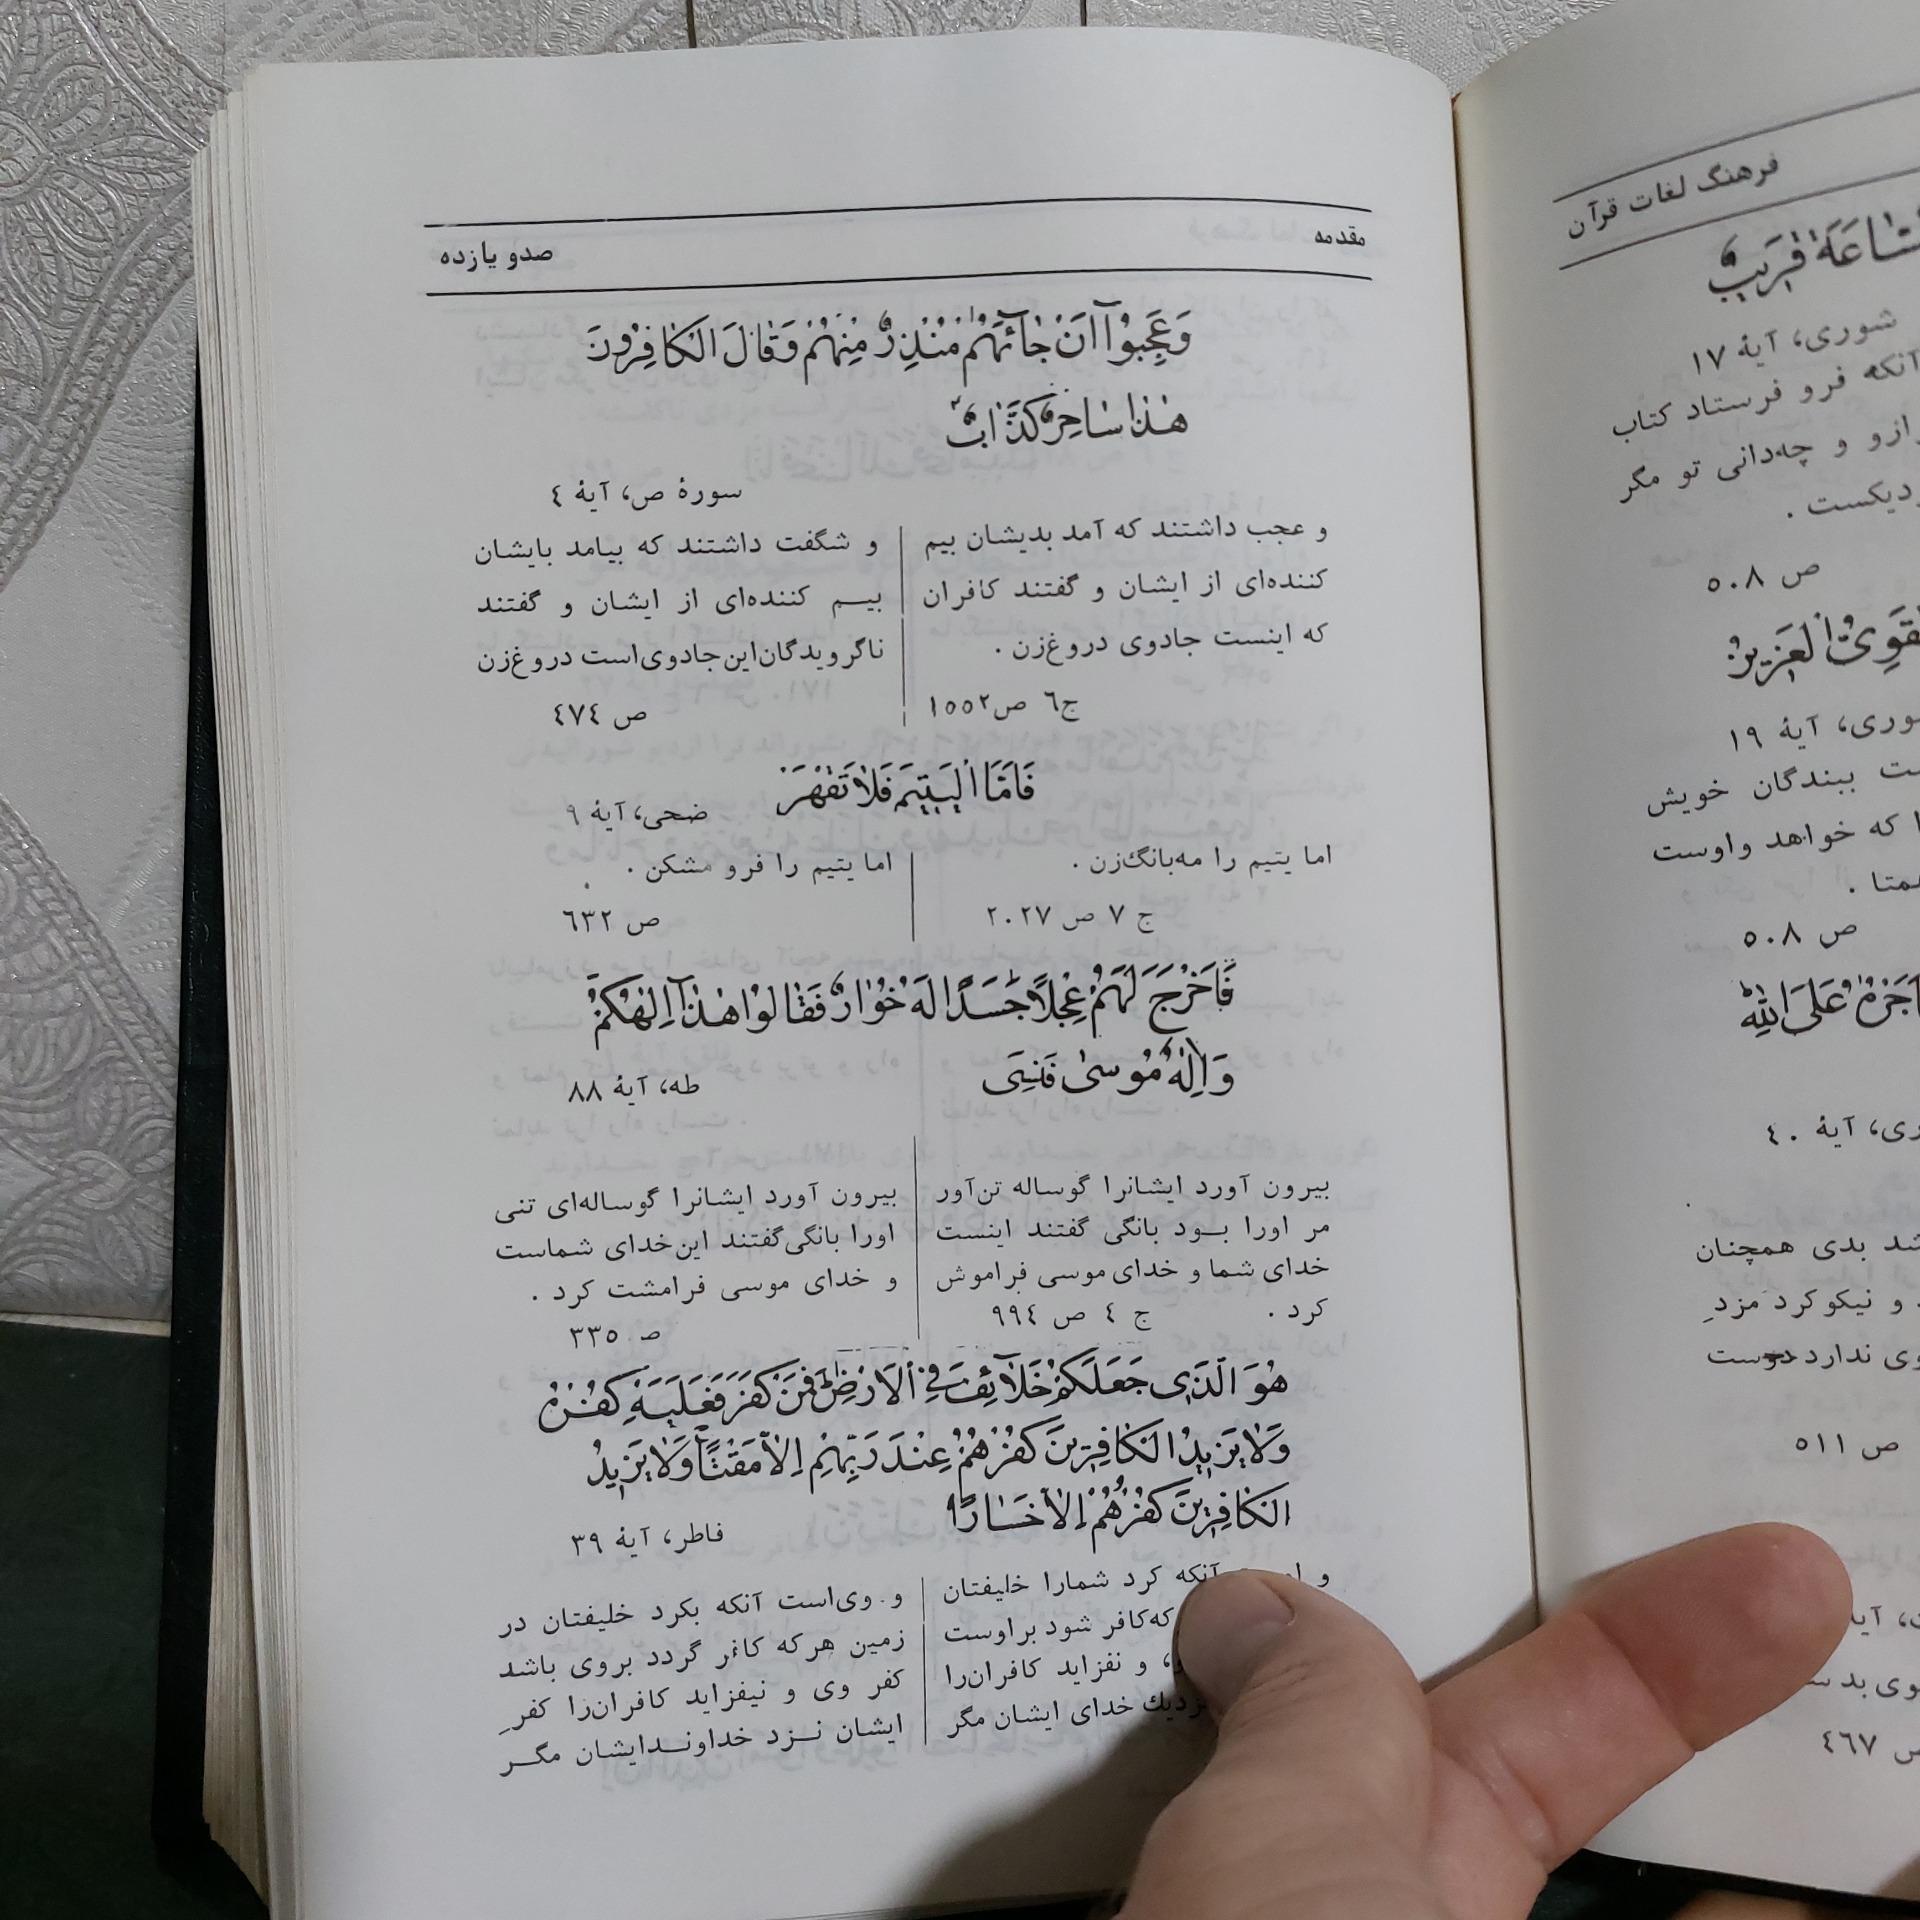 مقدمه
صدو یازده
وَعَجِبُوآ اَنْ جٰآئَهُمْ مُنْذِرٌ مِنْهُمْ وَقٰالَ الْكٰافِرُونَ
هٰذٰا سٰاحِرٌ كَذّٰابٌ
سورهٔ ص، آیهٔ ٤
و عجب داشتند که آمد بدیشان بیم
کننده‌ای از ایشان و گفتند کافران
که اینست جادوی دروغ‌زن .
ج٦ ص١٥٥٢
و شگفت داشتند که بیامد بایشان
بیم کننده‌ای از ایشان و گفتند
ناگرویدگان‌این‌جادوی‌است دروغ‌زن
ص ٤٧٤
فَاَمَّا الْيَتيمَ فَلاٰ تَقْهَرْ
ضحی، آیهٔ ٩
اما یتیم را مه‌بانگ‌زن .
ج ٧ ص ٢٠٢٧
اما یتیم را فرو مشکن .
ص ٦٣٢
فَاَخْرَجَ لَهُمْ عِجْلاً جَسَدًا لَهُ خُوٰارٌ فَقٰالُوا هٰذٰآ اِلٰهُكُمْ
وَاِلٰهُ مُوسىٰ فَنَسِىَ
طه، آیهٔ ٨٨
بیرون آورد ایشانرا گوساله تن‌آور
مر اورا بود بانگی گفتند اینست
خدای شما و خدای موسی فراموش
کرد .
ج ٤ ص ٩٩٤
بیرون آورد ایشانرا گوساله‌ای تنی
اورا بانگی‌گفتند این‌خدای شماست
و خدای موسی فرامشت کرد .
ص ٣٣٥
هُوَ الَّذى جَعَلَكُمْ خَلآٰئِفَ فِى الْاَرْضِ فَمَنْ كَفَرَ فَعَلَيْهِ كُفْرُهُ
وَلاٰ يَزيدُ الْكٰافِرينَ كُفْرُهُمْ عِنْدَ رَبِّهِمْ اِلاّٰ مَقْتًا وَلاٰ يَزيدُ
الْكٰافِرينَ كُفْرُهُمْ اِلاّٰ خَسٰارًا
فاطر، آیهٔ ٣٩
و آنکه کرد شمارا خلیفتان
که‌کافر شود براوست
و نفزاید کافران‌را
نزدیك خدای ایشان مگر
و وی‌است آنکه بکرد خلیفتان در
زمین هرکه کافر گردد بروی باشد
کفر وی و نیفزاید کافران‌را کفرِ
ایشان نزد خداوندایشان مگر
فرهنگ لغات قرآن
قَريبٌ
شوری، آیهٔ ١٧
آنکه فرو فرستاد کتاب
و چه‌دانی تو مگر
ص ٥٠٨
الْعَزيزُ
آیهٔ ١٩
ببندگان خویش
که خواهد واوست
ص ٥٠٨
عَلَى اللّٰهِ
آیهٔ ٤٠
بدی همچنان
و نیکوکرد مزدِ
ندارد دوست
ص ٥١١
ص ٤٦٧